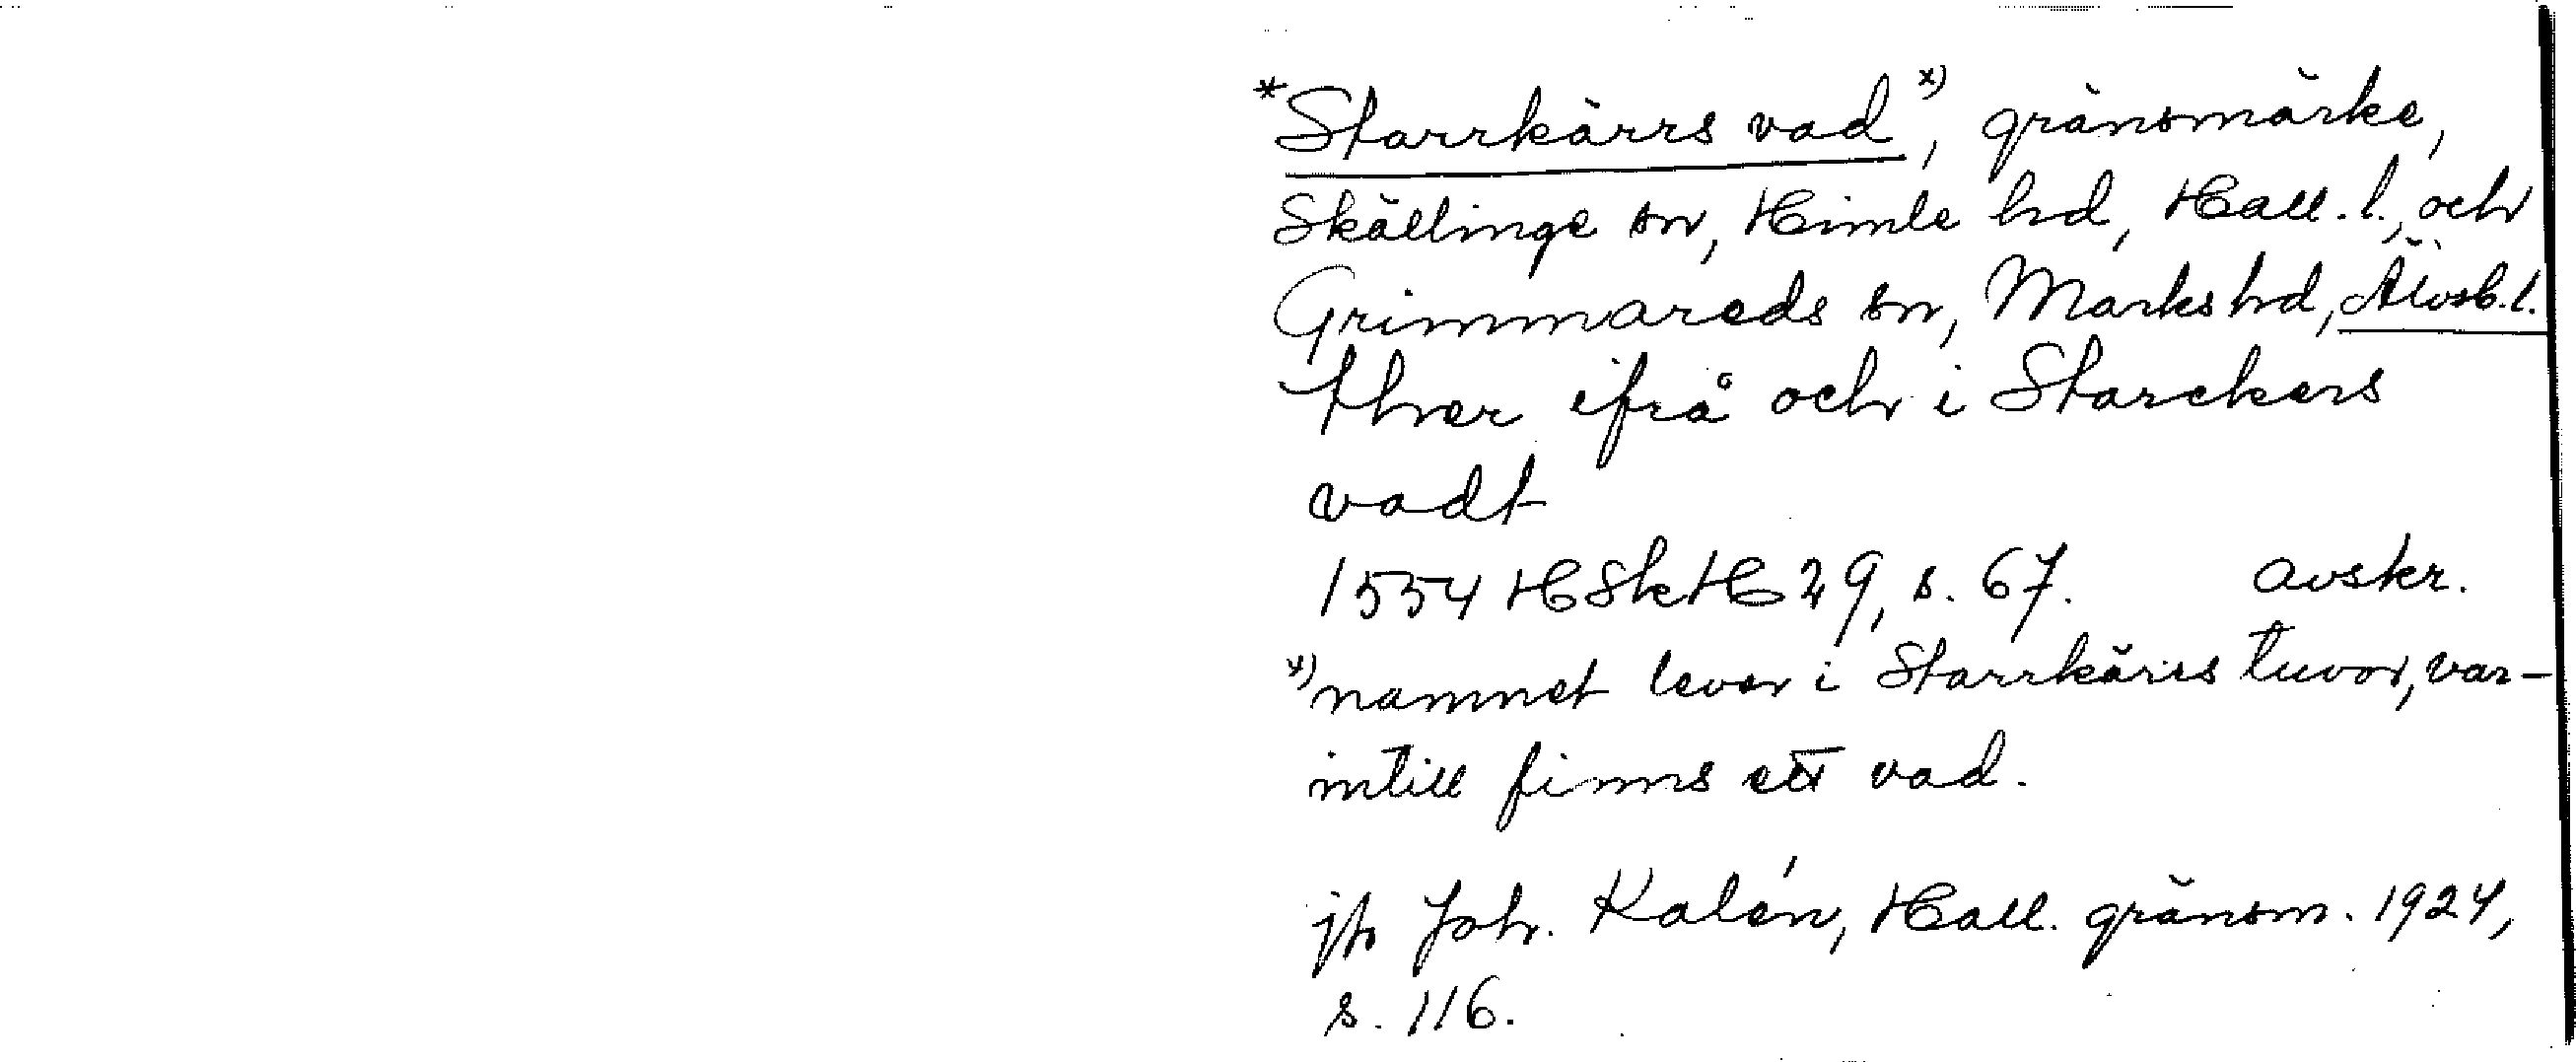 *Starrkärrs vad x), gränsmärke,
Skällinge sn, Himle hd, Hall. l., och
Grimmareds sn, Marks hd, Älvsb. l.
thær ifrå och i Starckers
vadt
1554 HSkH 29, s. 67. avskr.
x) namnet lever i Starrkärrs tuvor, var-
intill finns ett vad.
jfr Joh. Kalén, Hall. gränsm. 1924,
s. 116.